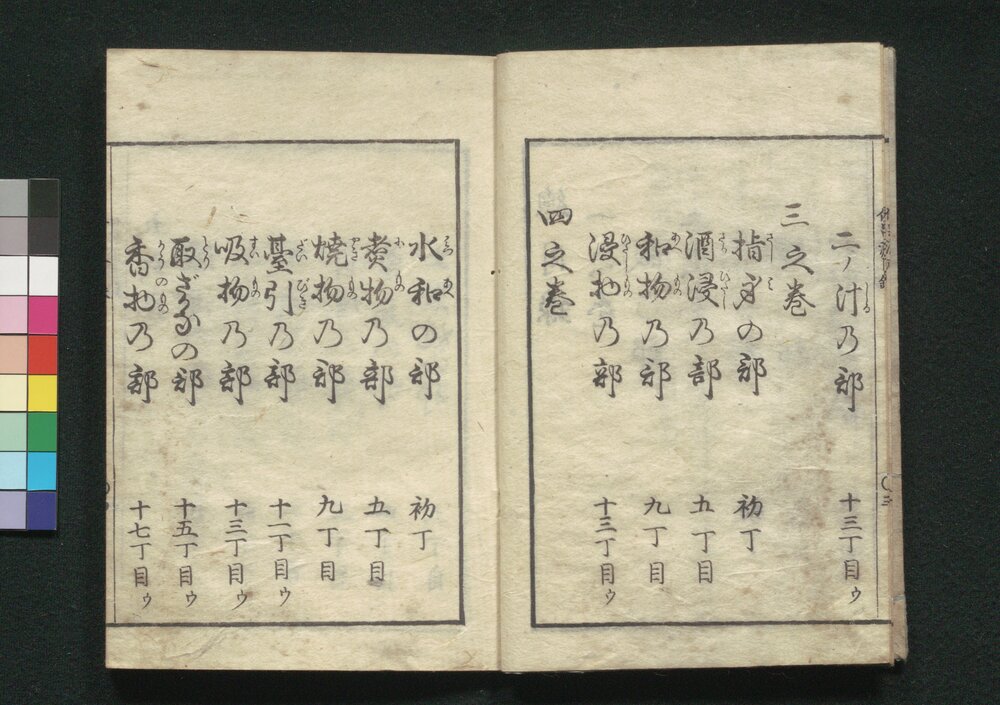 二ノ汁乃部 十三丁目ゥ
三之巻
指身の部 初丁
酒浸乃部 五丁目
和物乃部 九丁目
浸物乃部 十三丁目ゥ
四之巻
水和の部 初丁
煑物乃部 五丁目
燒物乃部 九丁目
臺引乃部 十一丁目ゥ
吸物乃部 十三丁目ゥ
取ざかなの部 十五丁目ゥ
香物乃部 十七丁目ゥ